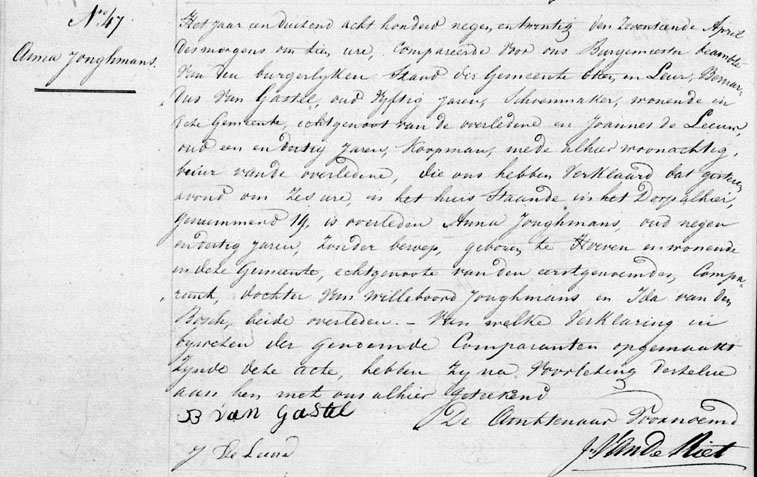 No. 47
Anna Jonghmans.
Het jaar een duizend acht honderd negen en twintig den zeventiende April
des morgens om tien ure, Compareerde voor ons Burgemeester Beambte
van den burgerlyken Stand der Gemeente Etten en Leur, Bernar,
dus van Gastel, oud vyftig jaren, Schoenmaker, wonende in
deze Gemeente, echtgenoot van de overledene en Joannes de Leeuw,
oud een en dertig jaren, Koopman, mede alhier woonachtig,
beiur vande overledene, die ons hebben Verklaard dat gisteren
avond om Zes ure, in het huis Staande in het Dorp alhier,
genummerd 19, is overleden Anna Jonghmans, oud negen
en dertig jaren, Zonder beroep, geboren te Hoeven en wonende
in deze Gemeente, echtgenoote van den eerstgenoemden, Compa,
rant, dochter van Willeboord Jonghmans en Ida van den
Bosch, beide overleden. – Van welke Verklaring in
bywezen der genoemde Comparanten opgemaakt
Zynde deze acte, hebben Zy na Voorlezing derzelve
aan hen met ons alhier geteekend
B van Gastel
De Ambtenaar Voornoemd
J De Leeuw
J. Van De Riet